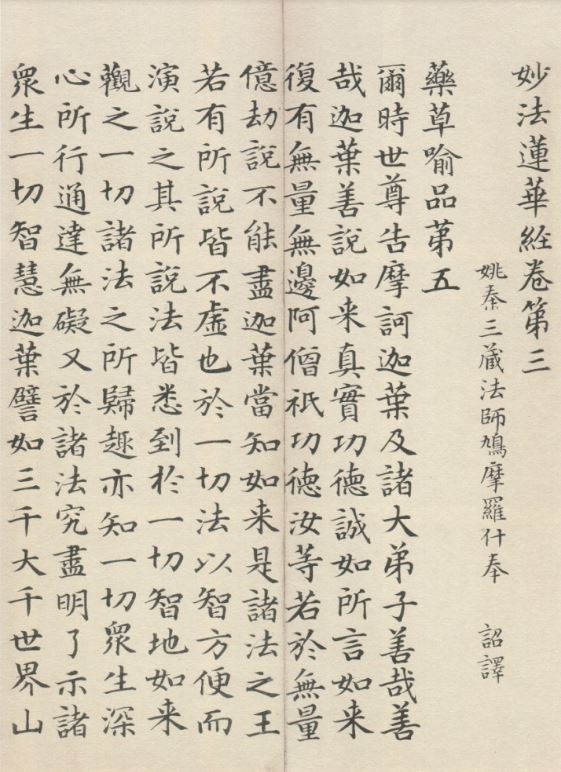 妙法蓮華經卷第三
姚秦三藏法師鳩摩羅什奉　詔譯
藥草喻品第五
爾時世尊告摩訶迦葉及諸大弟子善哉善
哉迦葉善說如来真實功德誠如所言如来
復有無量無邊阿僧祇功德汝等若於無量
億劫說不能盡迦葉當知如来是諸法之王
若有所說皆不虛也於一切法以智方便而
演說之其所說法皆悉到於一切智地如来
觀之一切諸法之所歸趣亦知一切眾生深
心所行通達無礙又於諸法究盡明了示諸
眾生一切智慧迦葉譬如三千大千世界山